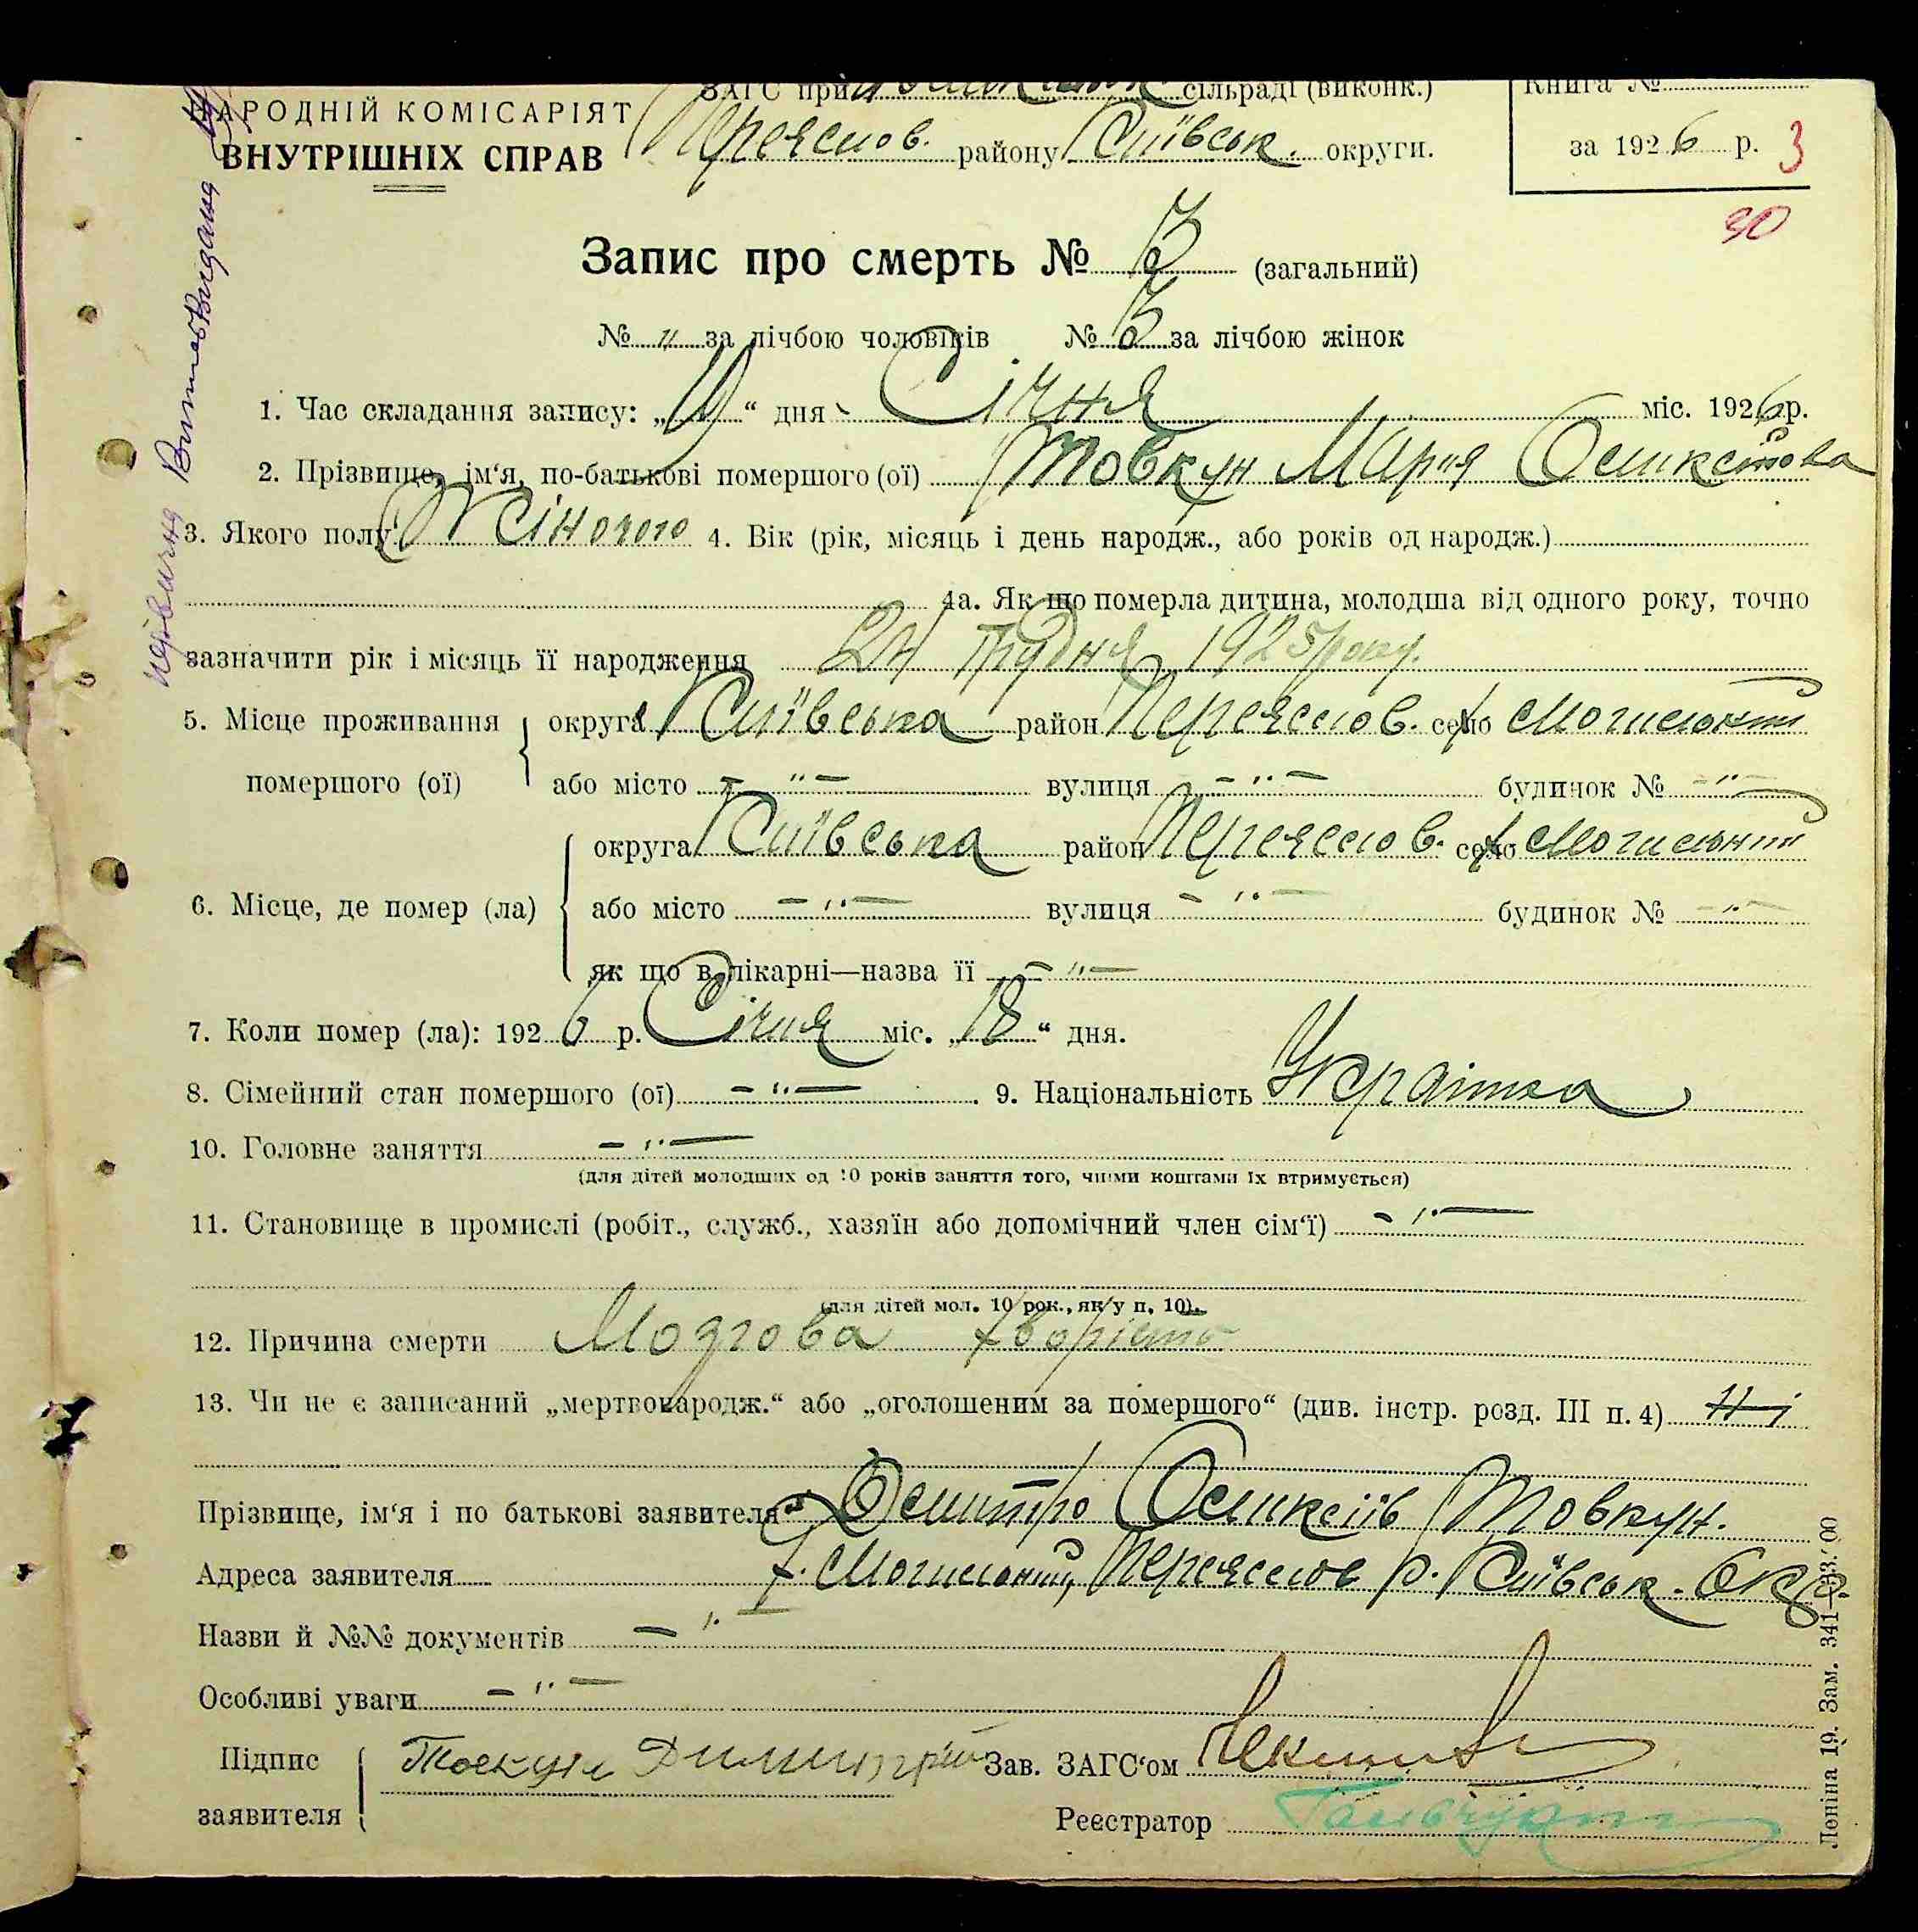 НАРОДНІЙ КОМІСАРІЯТ
ВНУТРІШНІХ СПРАВ
ЗАГС при сільраді (виконк.)
Переяслов. району Київськ. округи.
Книга №
за 1926 р. 3
90
Запис про смерть № 3 (загальний)
№ " за лічбою чоловіків № 3 за лічбою жінок
1. Час складання запису: „ “ дня Січня міс. 1926 р.
2. Прізвище, ім‘я, по-батькові помершого (ої) Товкун Мария
3. Якого полу Жіночого 4. Вік (рік, місяць і день народж., або років од народж.)
4а. Як що померла дитина, молодша від одного року, точно
зазначити рік і місяць її народження 24 Грудня 1925 року.
5. Місце проживання помершого (ої) округа Київська район Переяслов. село
або місто — " — вулиця — " — будинок № — " —
6. Місце, де помер (ла) округа Київська район Переяслов. село
або місто — " — вулиця — " — будинок № — " —
як що в лікарні—назва її — " —
7. Коли помер (ла): 1926 р. Січня міс. „18“ дня.
8. Сімейний стан помершого (ої) — " — 9. Національність Українка
10. Головне заняття — " —
(для дітей молодших од 10 років заняття того, чиїми коштами їх втримується)
11. Становище в промислі (робіт., служб., хазяїн або допомічний член сім‘ї) — " —
(для дітей мол. 10 рок., як у п. 10).
12. Причина смерти Мозгова хворість
13. Чи не є записаний „мертвонародж.“ або „оголошеним за помершого“ (див. інстр. розд. III п. 4) Ні
Прізвище, ім‘я і по батькові заявителя Дмитро Олексіїв Товкун.
Адреса заявителя х. Переяслов р. Київськ. Окр.
Назви й №№ документів — " —
Особливі уваги — " —
Підпис заявителя Товкун Зав. ЗАГС‘ом
Реєстратор
Леніна 19. Зам. 341